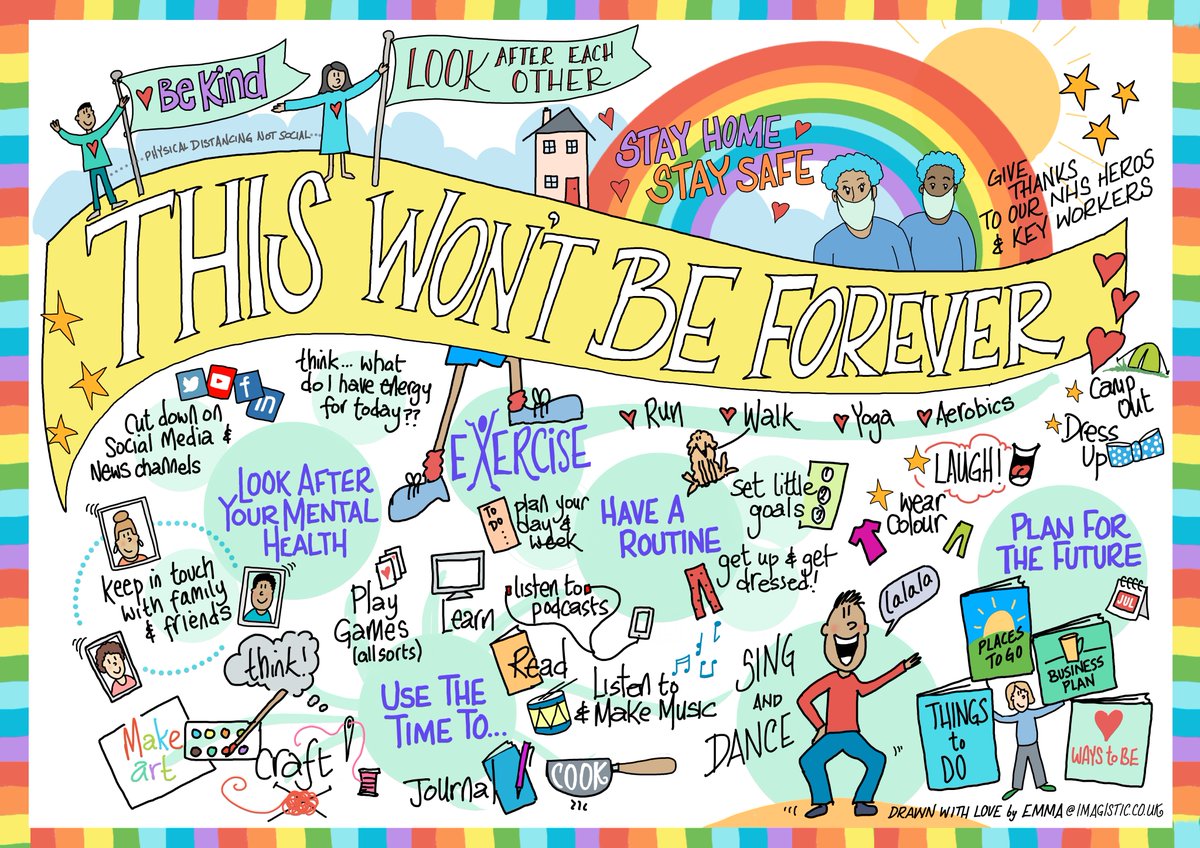 Be Kind
LOOK AFTER EACH
OTHER
PHYSICAL DISTANCING NOT SOCIAL...
STAY HOME
STAY SAFE
GIVE
THANKS
TO OUR NHS HEROS
& KEY WORKERS
THIS WON'T BE FOREVER
Cut down on
Social Media &
News channels
f
in
think... what
do I have energy
for today??
LOOK AFTER
YOUR MENTAL
HEALTH
keep in touch
with family
& friends
EXERCISE
Run
Walk
Yoga
Aerobics
Camp
Out
Dress
Up
LAUGH!
wear
Colour
TO
DO
plan your
day &
week
HAVE A
ROUTINE
set little
goals
get up & get
dressed!
PLAN FOR
THE FUTURE
JUL
PLACES
TO GO
BUSINESS
PLAN
THINGS
to
DO
WAYS to BE
Play
Games
(all sorts)
Learn
listen to
podcasts
Read
Listen to
& Make Music
USE THE
TIME TO...
think!
Make
art
Craft
Journal
COOK
SING
AND
DANCE
lalala
DRAWN WITH LOVE by EMMA@IMAGISTIC.CO.UK